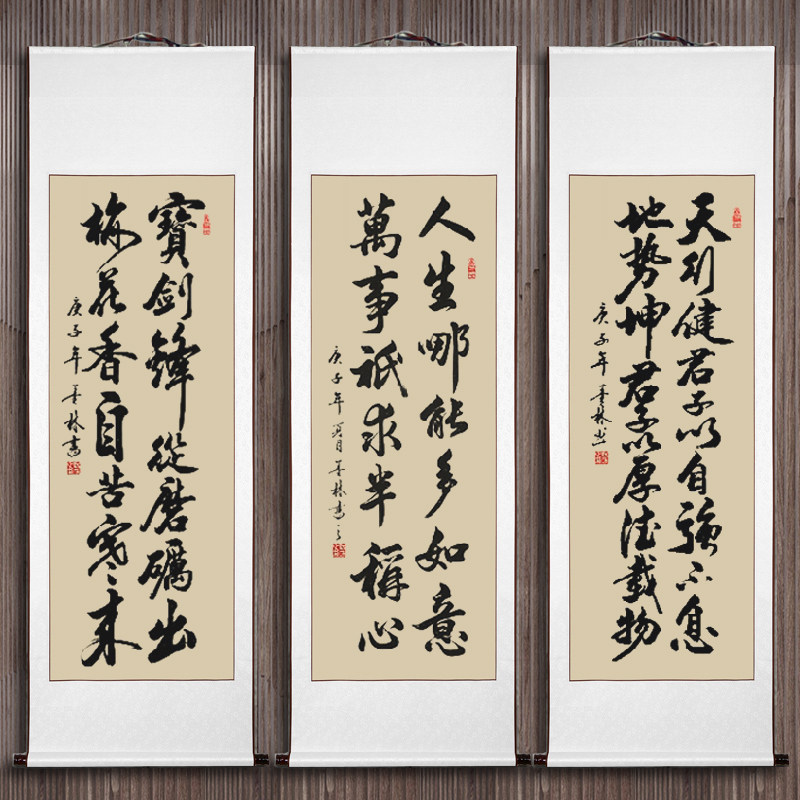 寶劍鋒從磨礪出
梅花香自苦寒来
庚子年 墨林書
人生哪能多如意
萬事祇求半稱心
庚子年 夏月 墨林書之
天行健君子以自强不息
地势坤君子以厚德載物
庚子年 墨林书